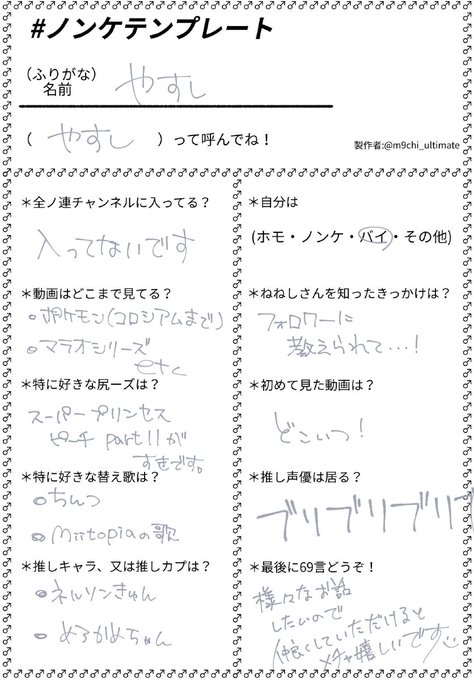 #ノンケテンプレート
(ふりがな)
名前 やすし
( やすし )って呼んでね！
製作者:@m9chi_ultimate
＊全ノ連チャンネルに入ってる？
入ってないです
＊動画はどこまで見てる？
ポケモン(コロシアムまで)
マラオシリーズ
etc
＊特に好きな尻ーズは？
スーパープリンセス
ピーチ part11が
すきです。
＊特に好きな替え歌は？
ちんつ
Miitopiaの歌
＊推しキャラ、又は推しカプは？
ネルソンきゅん
めろかめちゃん
＊自分は
(ホモ・ノンケ・バイ・その他)
＊ねねしさんを知ったきっかけは？
フォロワーに
教えられて…！
＊初めて見た動画は？
どこいつ！
＊推し声優は居る？
ブリブリブリブ
＊最後に69言どうぞ！
様々なお話
したいので
仲良くしていただけると
メチャ嬉しいです